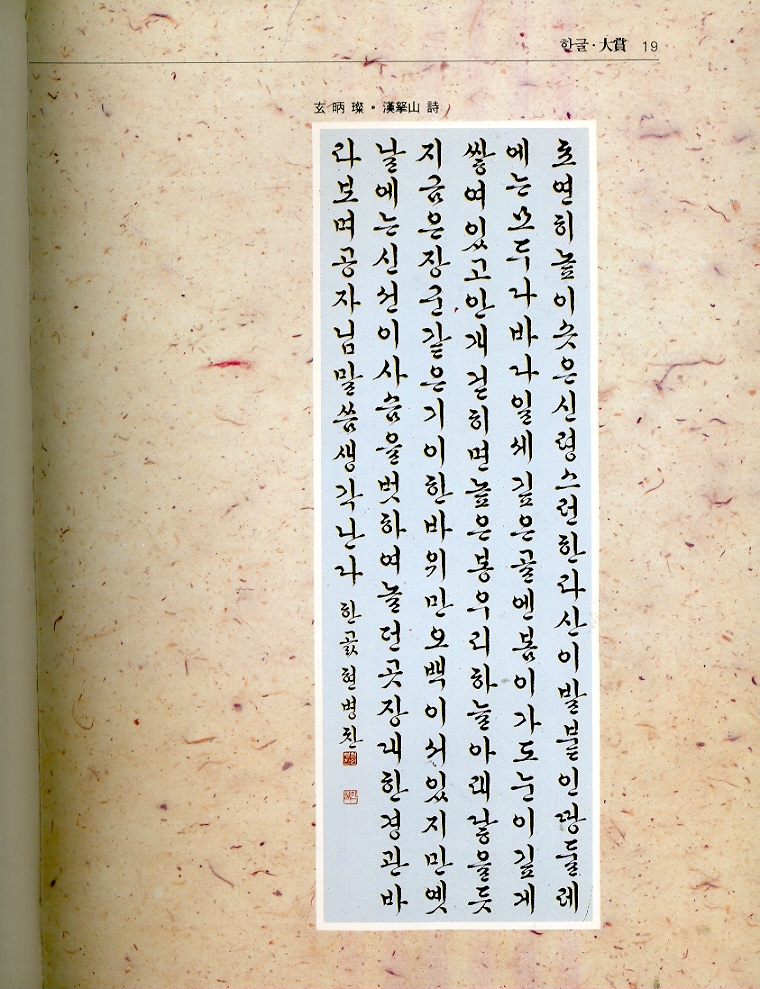 한글·大賞 19
玄昞璨·漢拏山 詩
초연히높이솟은신령스런한라산이발붙인땅둘레
에는모두다바다일세깊은골엔봄이가도눈이깊게
쌓여있고안개걷히면높은봉우리하늘아래닿을듯
지금은장군같은기이한바위만오백이서있지만옛
날에는신선이사슴을벗하여놀던곳장대한경관바
라보며공자님말씀생각난다 한곬 현병찬